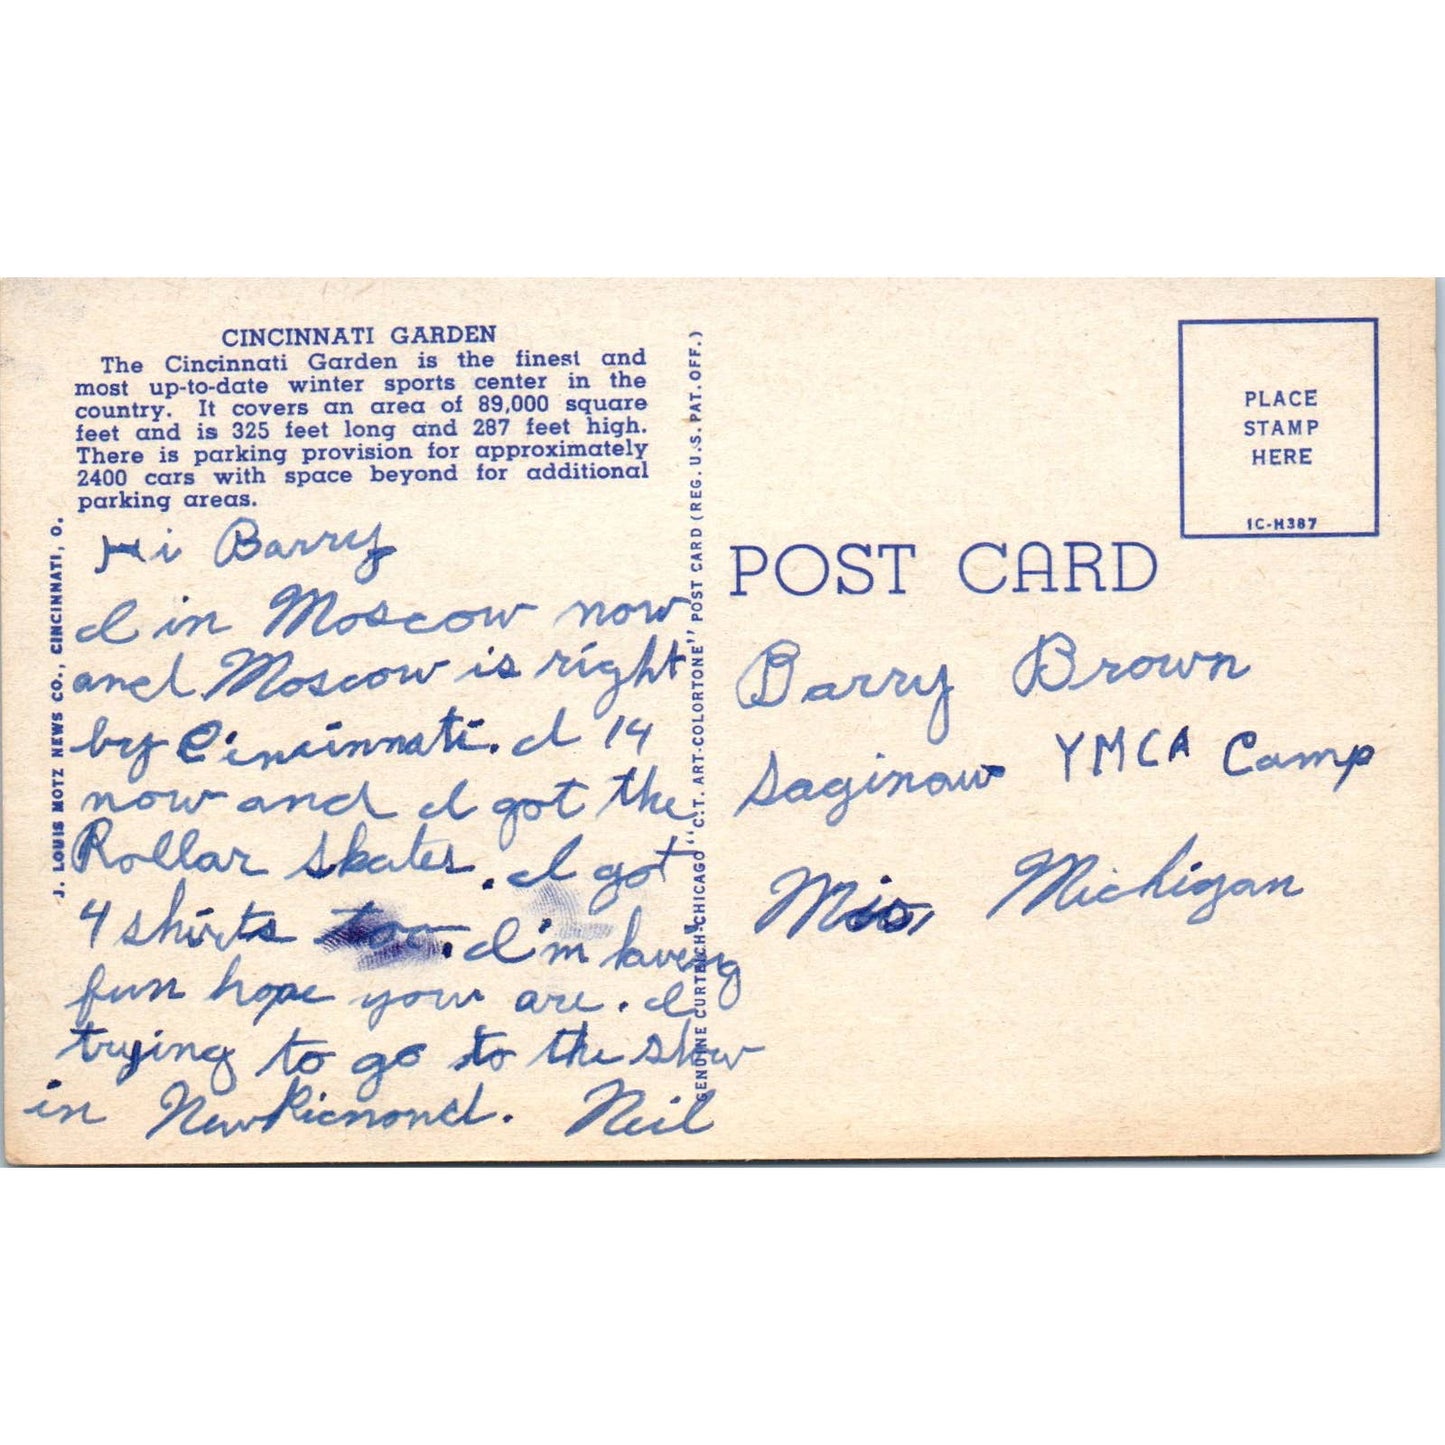 CINCINNATI GARDEN
The Cincinnati Garden is the finest and
most up-to-date winter sports center in the
country. It covers an area of 89,000 square
feet and is 325 feet long and 287 feet high.
There is parking provision for approximately
2400 cars with space beyond for additional
parking areas.
Hi Barry
I in Moscow now
and Moscow is right
by Cincinnati. I 14
now and I got the
Rollar skates. I got
4 shirts too. I'm having
fun hope your are. I
trying to go to the show
in New Ricmond. Neil
J. LOUIS MOTZ NEWS CO., CINCINNATI, O.
GENUINE CURTEICH-CHICAGO "C.T. ART-COLORTONE" POST CARD (REG. U.S. PAT. OFF.)
PLACE
STAMP
HERE
1C-H387
POST CARD
Barry Brown
Saginaw YMCA Camp
Michigan